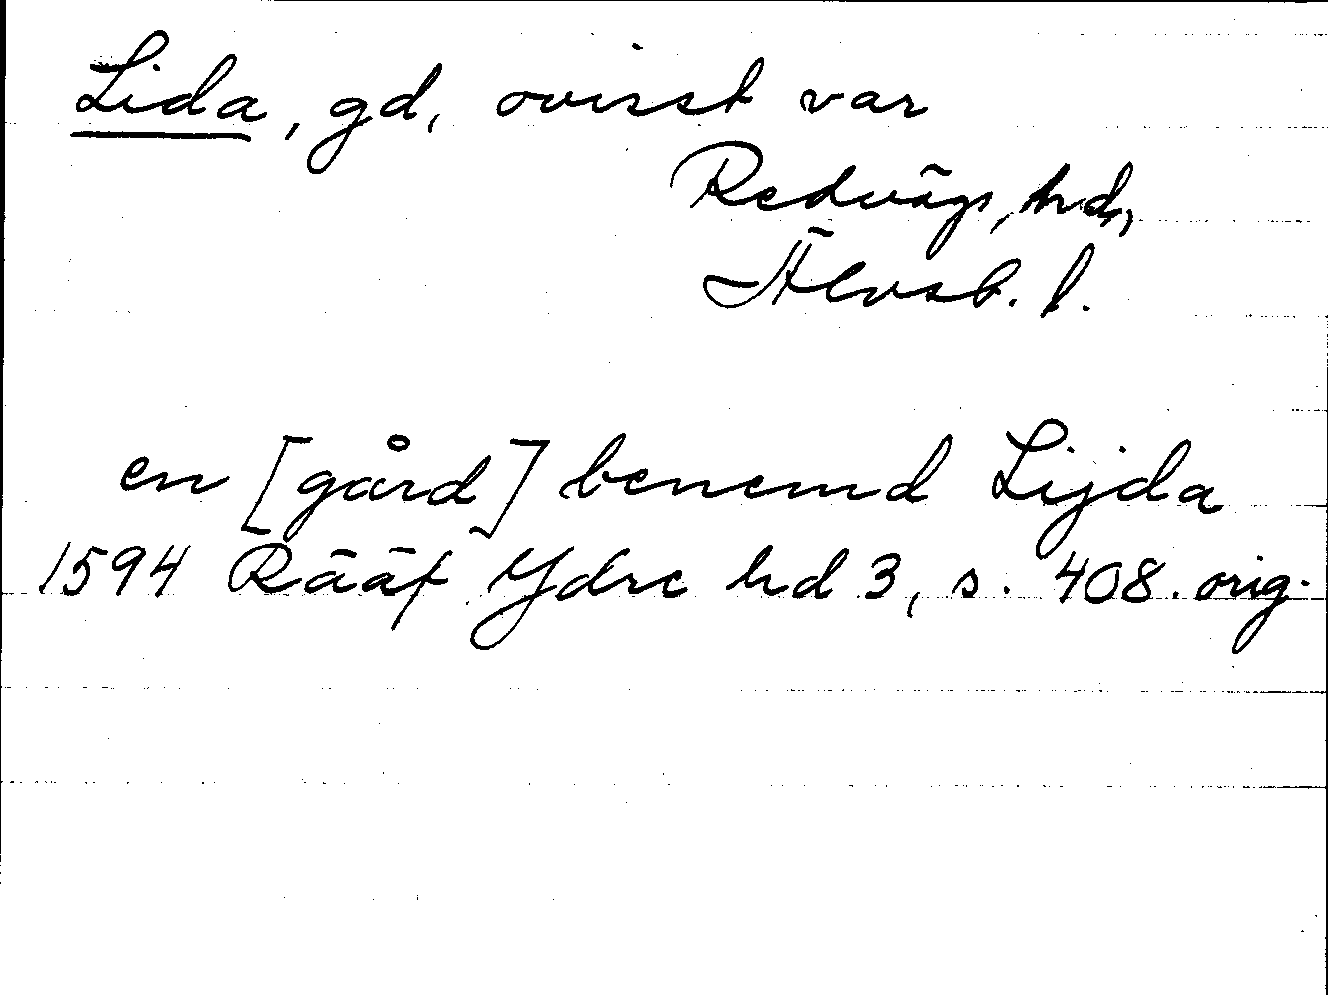 Lida, gd, ovisst var
Redvägs, hd,
Älvsb. l.
en [gård] benemd Lijda
1594 Rääf Ydre hd 3, s. 408. orig.